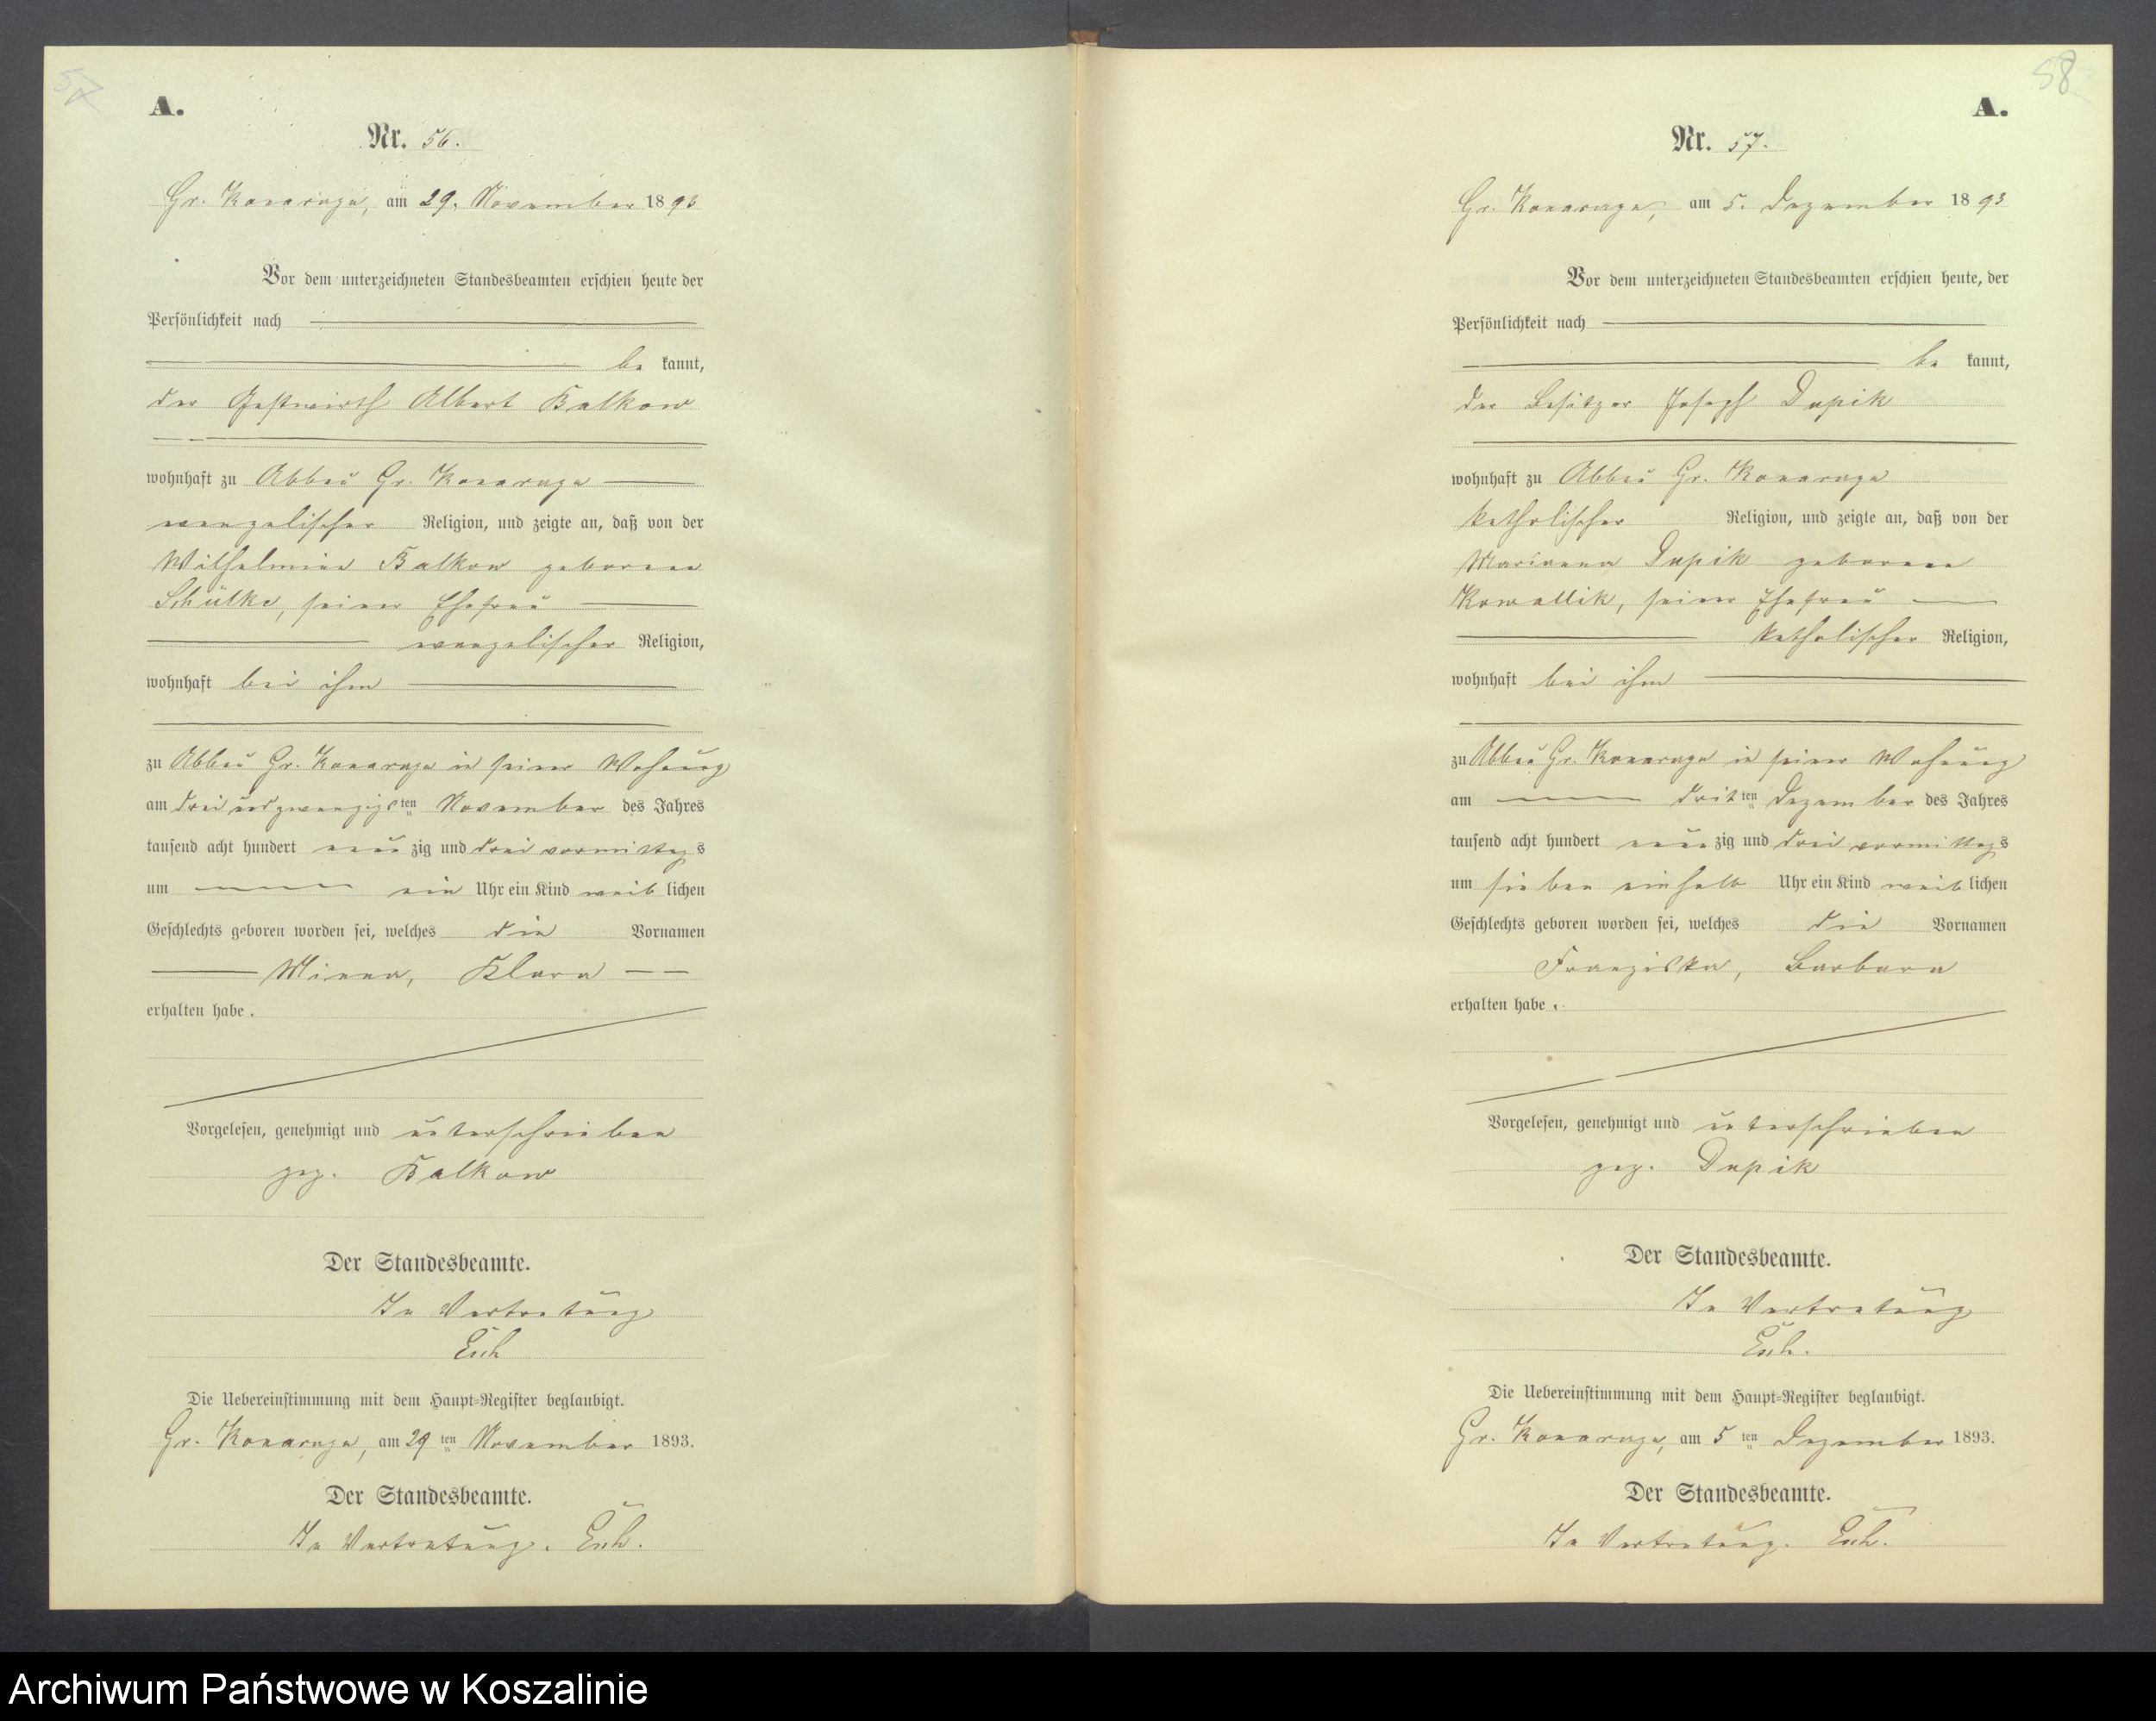 57
A.
Nr. 56.
Gr. Konarzyn, am 29. November 1893
Vor dem unterzeichneten Standesbeamten erschien heute der
Persönlichkeit nach
be kannt,
der Gastwirth Albert Balkow
wohnhaft zu Abbau Gr. Konarzyn
evangelischer Religion, und zeigte an, daß von der
Wilhelmine Balkow geborene
Schülke, seiner Ehefrau
evangelischer Religion,
wohnhaft bei ihm
zu Abbau Gr. Konarzyn in seiner Wohnung
am drei und zwanzigsten November des Jahres
tausend acht hundert neun zig und drei vormittags
um ein Uhr ein Kind weib lichen
Geschlechts geboren worden sei, welches die Vornamen
Minna, Klara
erhalten habe.
Vorgelesen, genehmigt und unterschrieben
gez. Balkow
Der Standesbeamte.
In Vertretung
Die Uebereinstimmung mit dem Haupt-Register beglaubigt.
Gr. Konarzyn, am 29 ten November 1893.
Der Standesbeamte.
In Vertretung.
58
A.
Nr. 57.
Gr. Konarzyn, am 5. Dezember 1893
Vor dem unterzeichneten Standesbeamten erschien heute, der
Persönlichkeit nach
be kannt,
der Besitzer Joseph Dupik
wohnhaft zu Abbau Gr. Konarzyn
katholischer Religion, und zeigte an, daß von der
Marianna Dupik geborene
Kowallik, seiner Ehefrau
katholischer Religion,
wohnhaft bei ihm
zu Abbau Gr. Konarzyn in seiner Wohnung
am dritten Dezember des Jahres
tausend acht hundert neun zig und drei vormittags
um sieben einhalb Uhr ein Kind weib lichen
Geschlechts geboren worden sei, welches die Vornamen
Franziska, Barbara
erhalten habe.
Vorgelesen, genehmigt und unterschrieben
gez. Dupik
Der Standesbeamte.
In Vertretung
Die Uebereinstimmung mit dem Haupt-Register beglaubigt.
Gr. Konarzyn, am 5 ten Dezember 1893.
Der Standesbeamte.
In Vertretung.
Archiwum Państwowe w Koszalinie